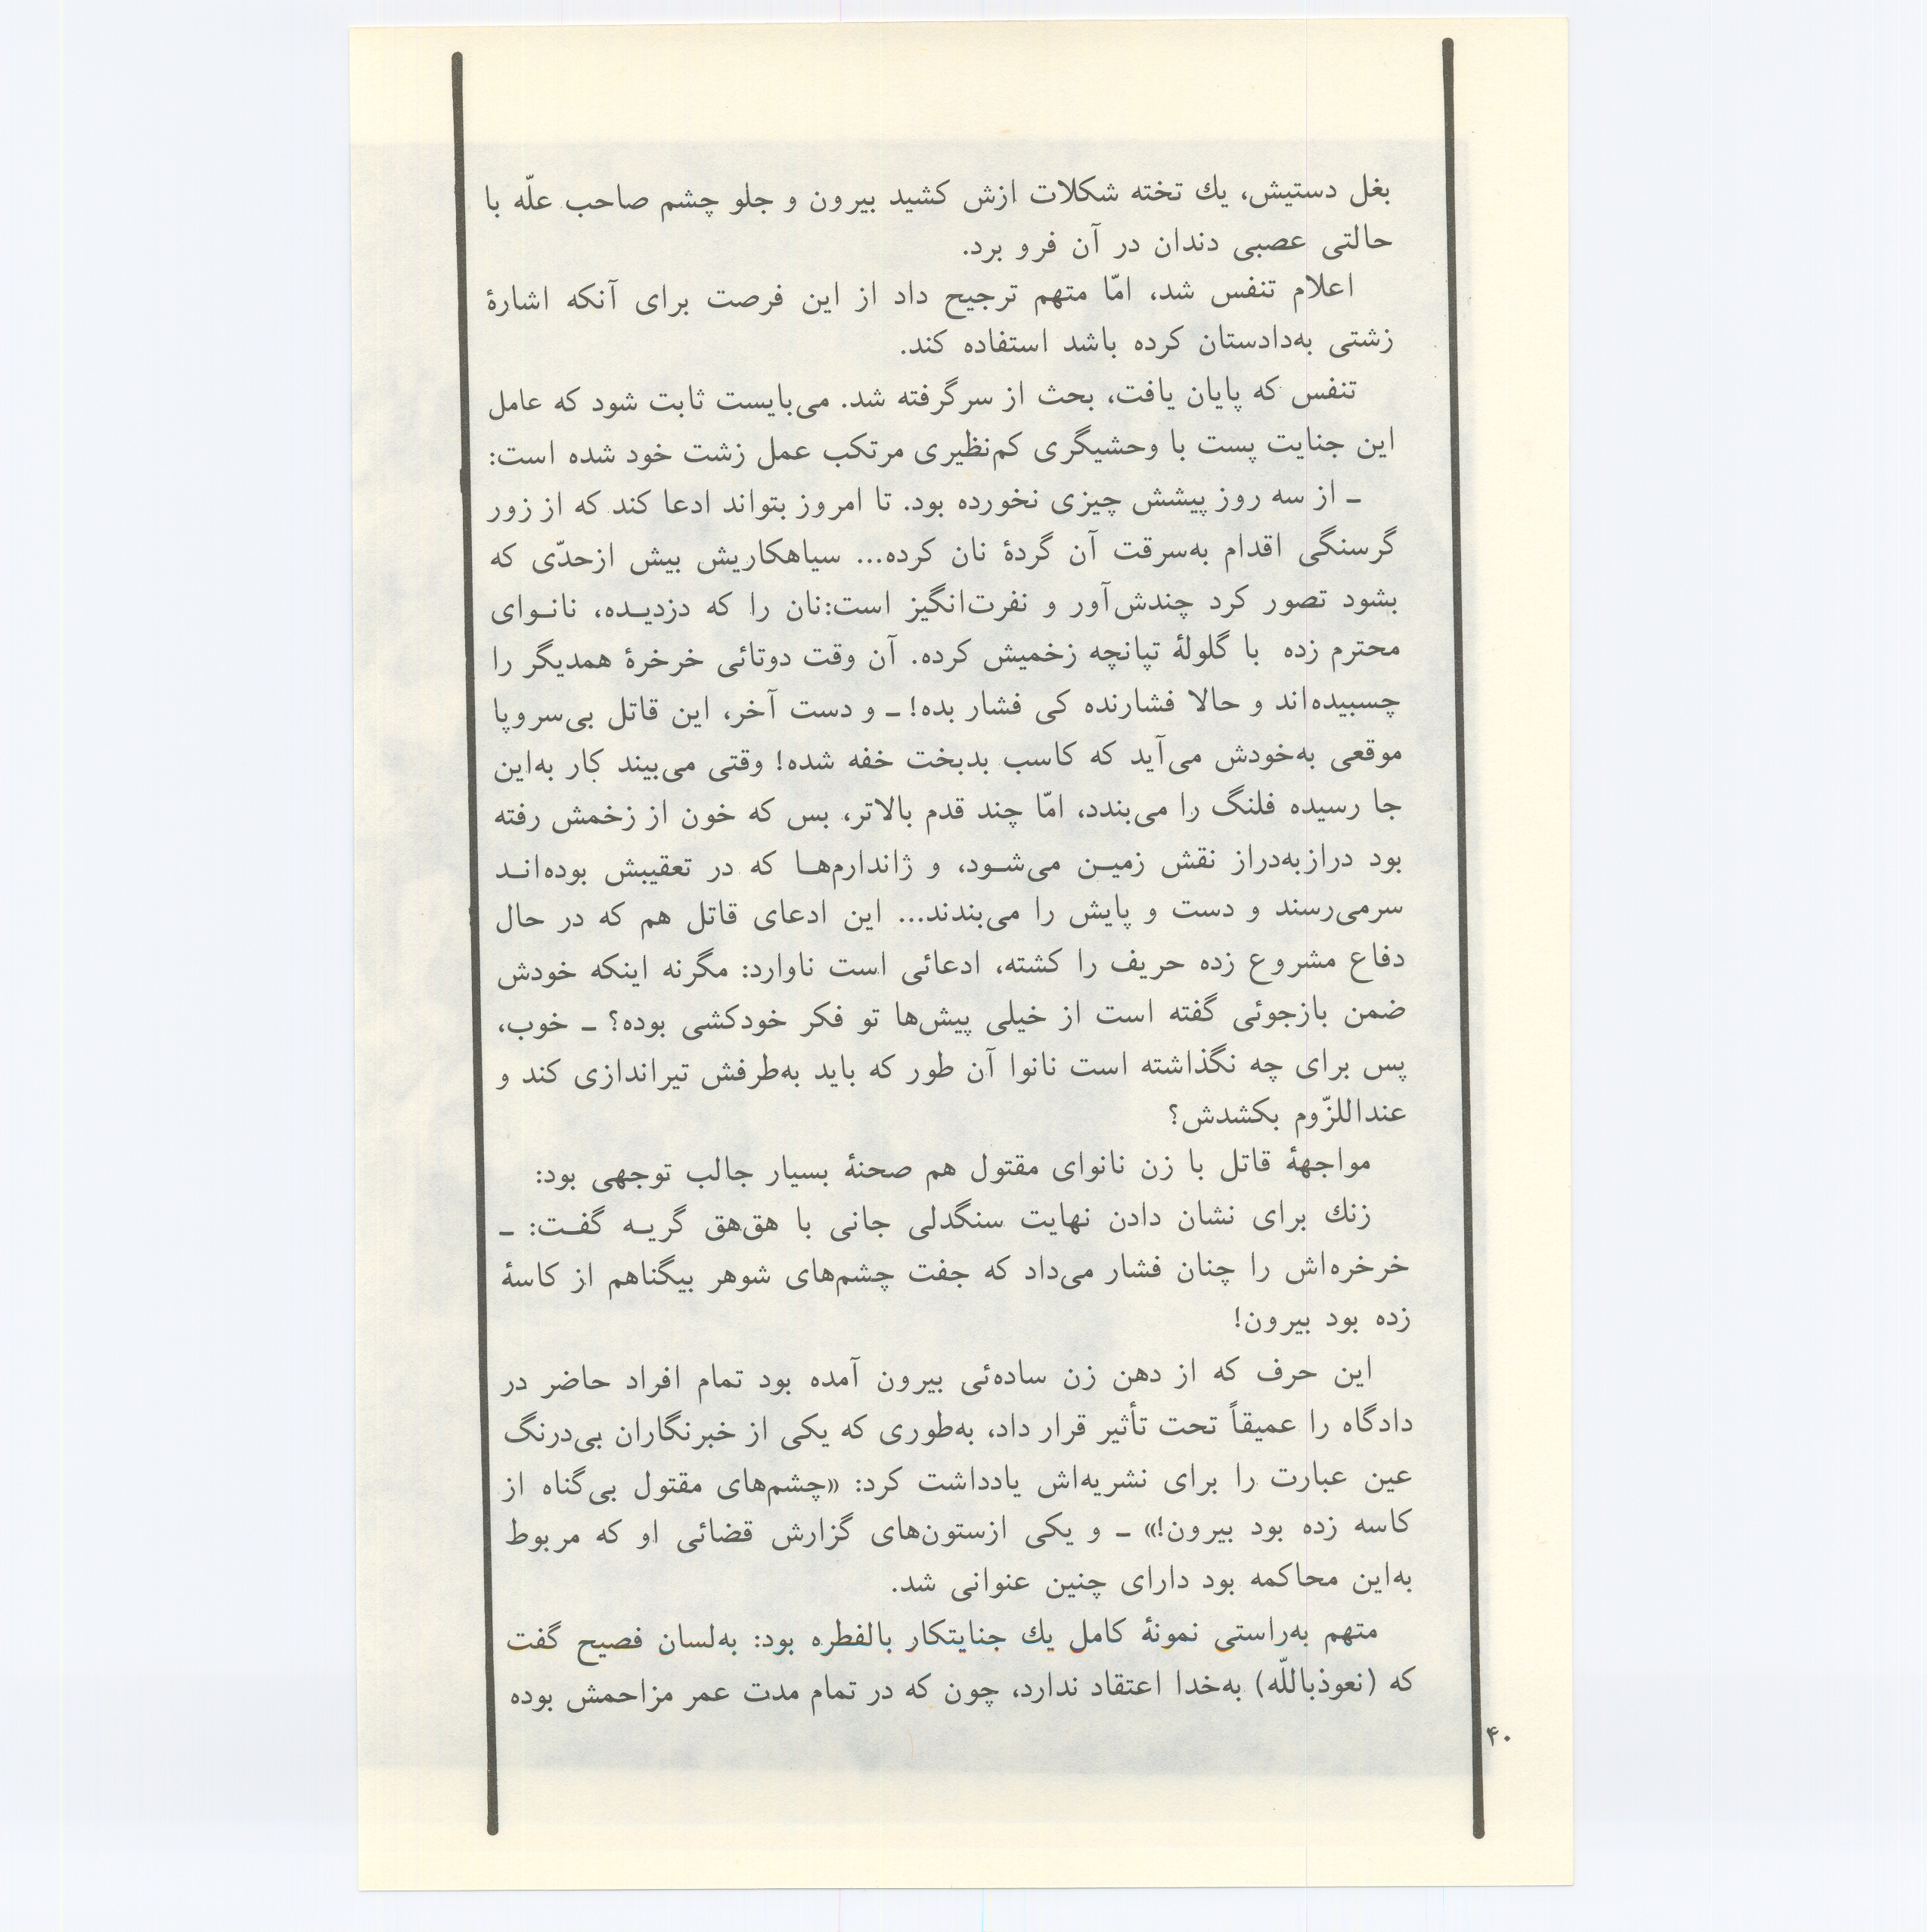 بغل دستیش، یك تخته شکلات ازش کشید بیرون و جلو چشم صاحب علّه با
حالتی عصبی دندان در آن فرو برد.
اعلام تنفس شد، امّا متهم ترجیح داد از این فرصت برای آنکه اشارهٔ
زشتی به‌دادستان کرده باشد استفاده کند.
تنفس که پایان یافت، بحث از سرگرفته شد. می‌بایست ثابت شود که عامل
این جنایت پست با وحشیگری کم‌نظیری مرتکب عمل زشت خود شده است:
ـ از سه روز پیشش چیزی نخورده بود. تا امروز بتواند ادعا کند که از زور
گرسنگی اقدام به‌سرقت آن گردهٔ نان کرده... سیاهکاریش بیش ازحدّی که
بشود تصور کرد چندش‌آور و نفرت‌انگیز است:نان را که دزدیـده، نانـوای
محترم زده با گلولهٔ تپانچه زخمیش کرده. آن وقت دوتائی خرخرهٔ همدیگر را
چسبیده‌اند و حالا فشارنده کی فشار بده! ـ و دست آخر، این قاتل بی‌سروپا
موقعی به‌خودش می‌آید که کاسب بدبخت خفه شده! وقتی می‌بیند کار به‌این
جا رسیده فلنگ را می‌بندد، امّا چند قدم بالاتر، بس که خون از زخمش رفته
بود درازبه‌دراز نقش زمیـن می‌شـود، و ژاندارم‌هـا که در تعقیبش بوده‌انـد
سرمی‌رسند و دست و پایش را می‌بندند... این ادعای قاتل هم که در حال
دفاع مشروع زده حریف را کشته، ادعائی است ناوارد: مگرنه اینکه خودش
ضمن بازجوئی گفته است از خیلی پیش‌ها تو فکر خودکشی بوده؟ ـ خوب،
پس برای چه نگذاشته است نانوا آن طور که باید به‌طرفش تیراندازی کند و
عنداللزّوم بکشدش؟
مواجههٔ قاتل با زن نانوای مقتول هم صحنهٔ بسیار جالب توجهی بود:
زنك برای نشان دادن نهایت سنگدلی جانی با هق‌هق گریـه گفـت: ـ
خرخره‌اش را چنان فشار می‌داد که جفت چشم‌های شوهر بیگناهم از کاسهٔ
زده بود بیرون!
این حرف که از دهن زن ساده‌ئی بیرون آمده بود تمام افراد حاضر در
دادگاه را عمیقاً تحت تأثیر قرار داد، به‌طوری که یکی از خبرنگاران بی‌درنگ
عین عبارت را برای نشریه‌اش یادداشت کرد: «چشم‌های مقتول بی‌گناه از
کاسه زده بود بیرون!» ـ و یکی ازستون‌های گزارش قضائی او که مربوط
به‌این محاکمه بود دارای چنین عنوانی شد.
متهم به‌راستی نمونهٔ کامل یك جنایتکار بالفطره بود: به‌لسان فصیح گفت
که (نعوذباللّه) به‌خدا اعتقاد ندارد، چون که در تمام مدت عمر مزاحمش بوده
۴۰